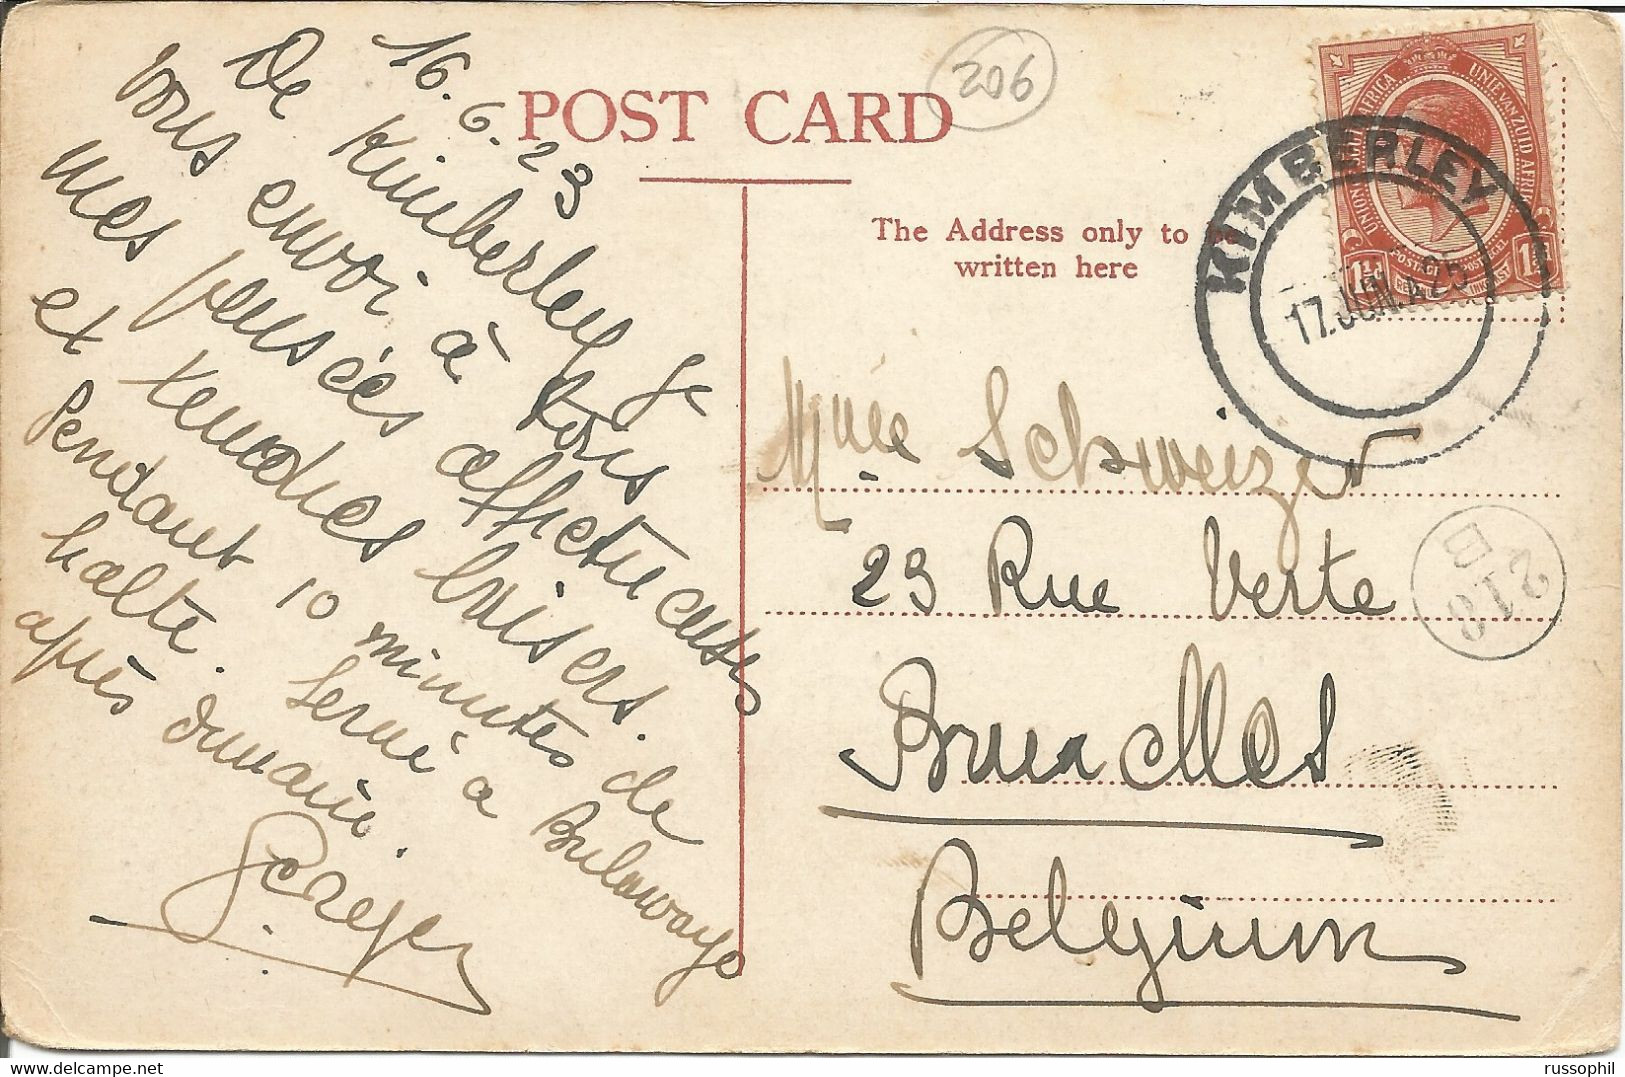 16.6.23
De Kimberley je
vous envoi à tous
mes pensées affectueuses
et tendres baisers.
Pendant 10 minutes de
halte. à Bulawaye
après
POST CARD
206
The Address only to be
written here
UNION OF SOUTH AFRICA UNIE VAN ZUID AFRIKA
POSTAGE POSTZEGEL
1½D 1½D
KIMBERLEY
17.JUN. 25
Mme Schweizer
23 Rue Verte
Bruxelles
Belgium
218
B
russophil delcampe.net